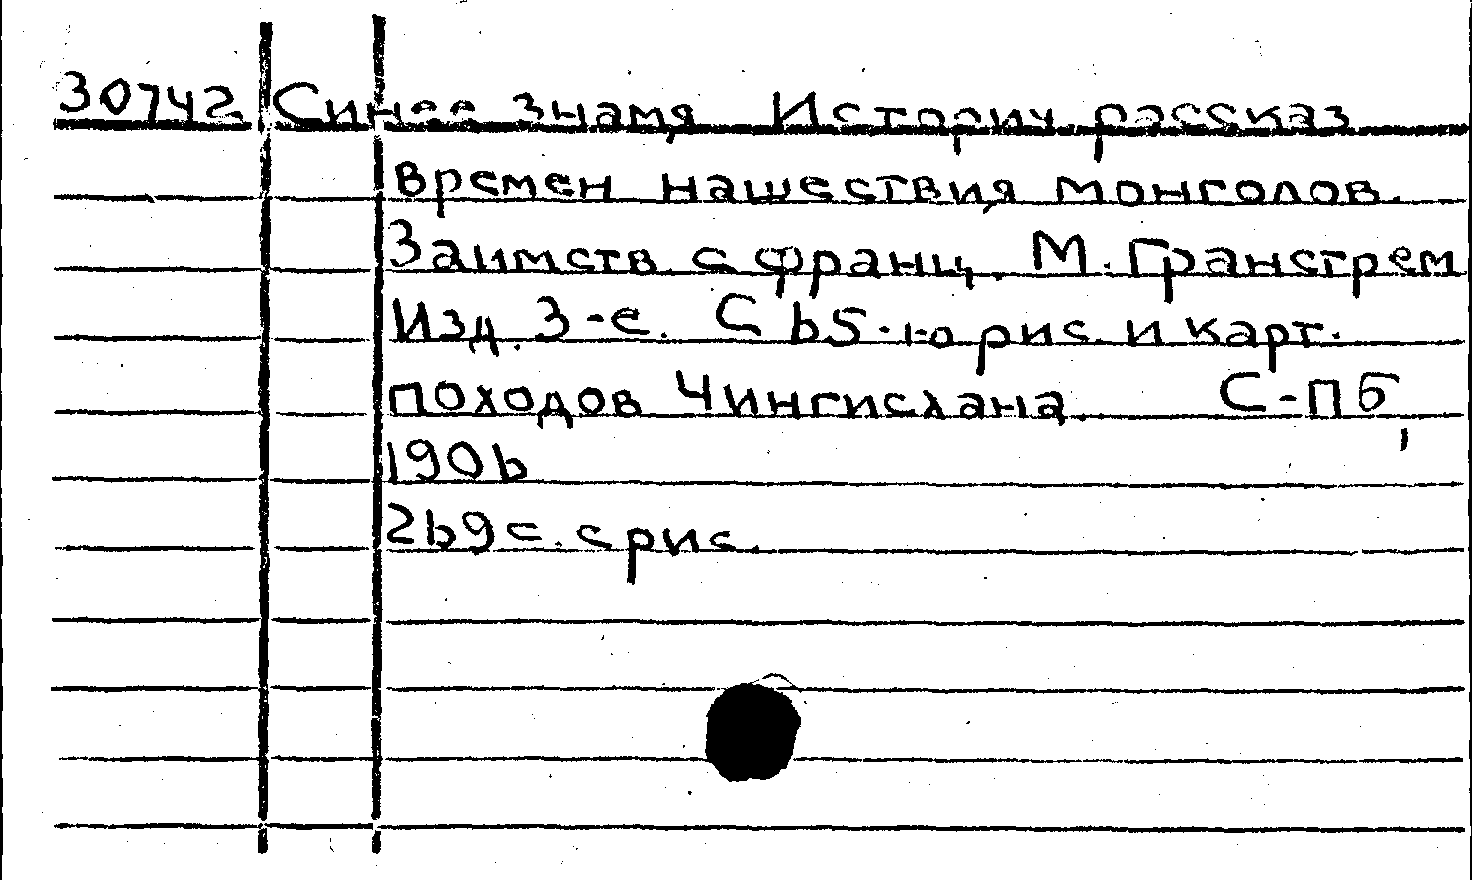 30742 Синее знамя Историч рассказ
времен нашествия монголов.
Заимств. с франц. М. Гранстрем
Изд. 3-е. С 65-ю рис. и карт.
походов Чингисхана. С-ПБ,
1906
269 с. с рис.